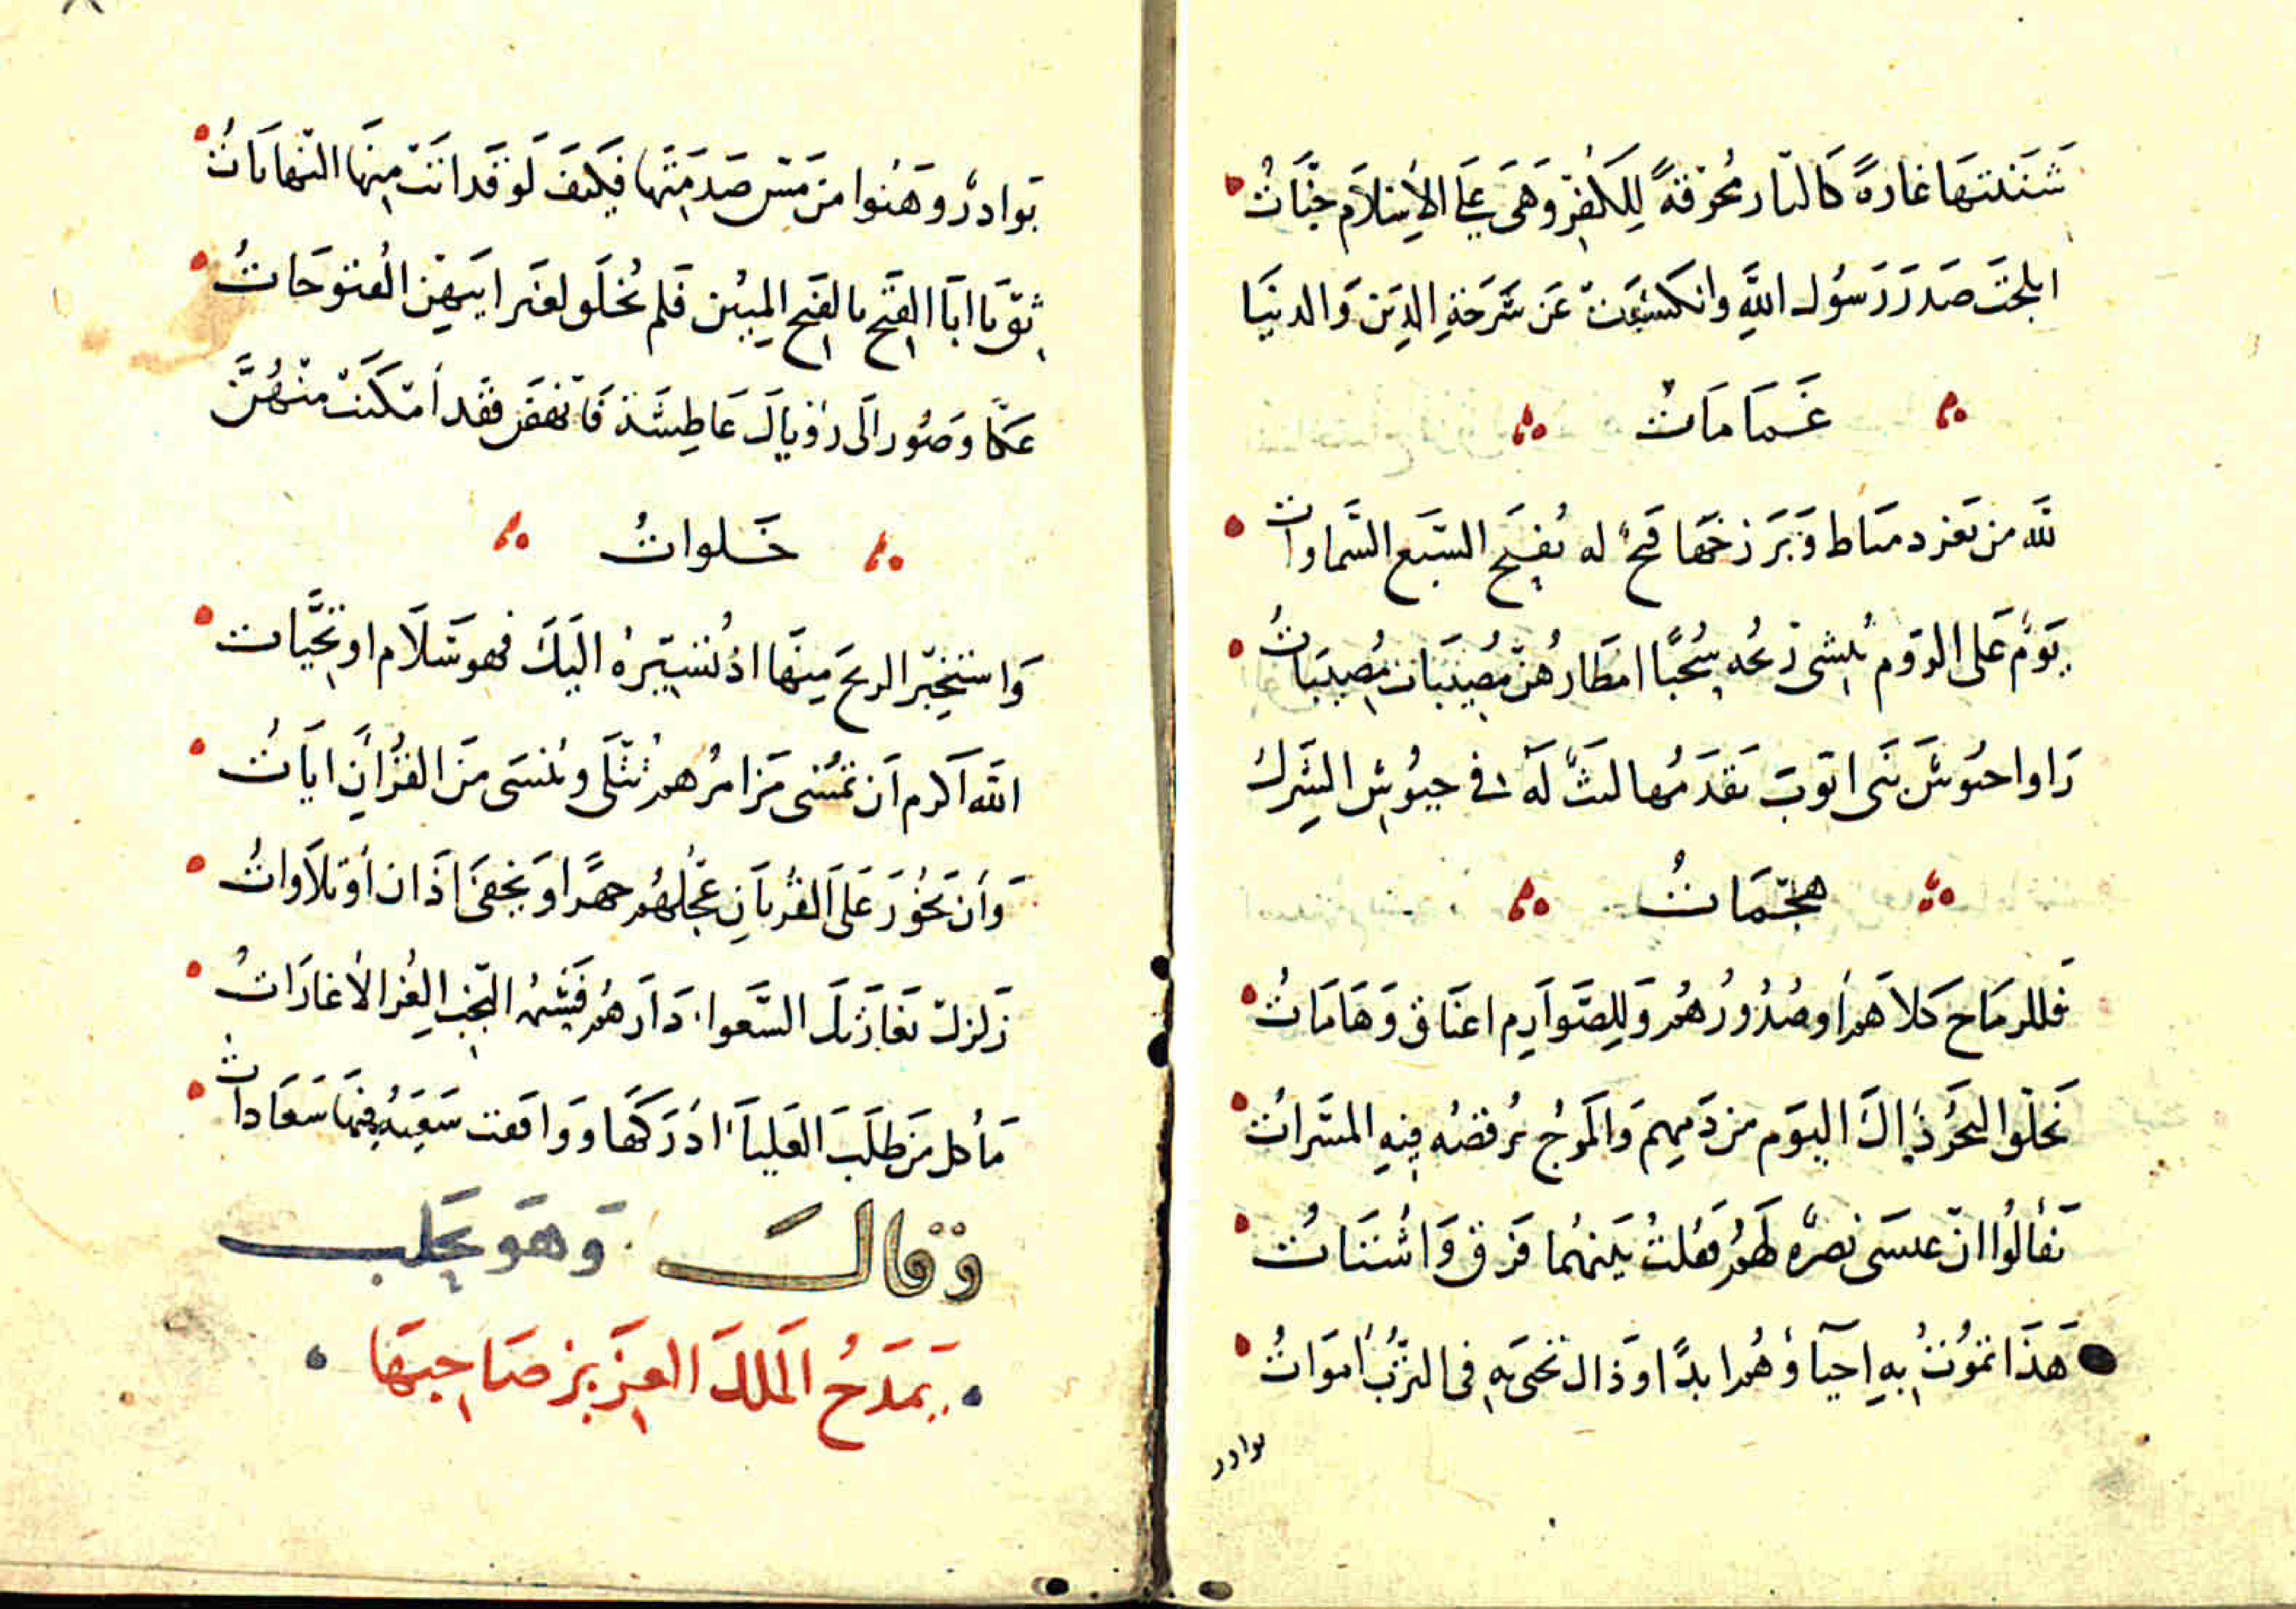 شَنَنتَهَا غَارَةً كَالنّار مُحْرِقَةً لِلكُفْرِ وَهْيَ عَلَى الإِسْلَامِ جَنَّاتُ
ابلجتَ صَدرَ رَسُول اللَّهِ وانكَشَفت عَن سَرحَةِ الدِين وَالدنيَا
غَمَامَاتُ
لله من ثغر دمياط وَبَرزخهَا فتحٌ له تُفتح السَّبع السَّماوات
يَومٌ عَلى الرّوم يُنشي رِيحُه سُحُبًا امطَارُهُنّ مُصِيبَات مُصِيبَاتُ
رَاوا جيُوشَ بَنى ايّوبَ يَقدمُها ليثٌ لَهُ في جيُوشِ الشِّركِ
هجّمَاتُ
فَللرمَاح كلَاهم أو صُدُورُهُم وَلِلصَّوَارِم اعنَاق وَهَامَاتُ
تَخلّوا البَحْرُ ذاكَ اليَوم من دَمِهِم وَالمَوجُ يُرقصُه فِيهِ المسَّراتُ
تفألُوا انّ عيسَى نصرُه لهُم فَقُلتُ بَينهُما فرق وَاشتَاتُ
هَذَا تمُوتُ بِهِ احيَآؤُهُم ابدًا وَذَاك تحيَى بِهِ فى التُّرْب أموَاتُ
بوادر
بَوادرٌ وَهَنوا من مَسّ صَدمَتِهَا فَكَيفَ لَو قَد اتَتْ مِنهَا النّهَايَاتُ
ثِق يَا ابَا الفَتح بالفَتح المبين فَلم تُخلَق لغَير ايَيهِنّ الفتوحَاتُ
عَكّا وَصُور الَى رُؤيَاكَ عَاطِشَة فَانْهَض فقَد أمكَنَت مِنهُنَّ
خَلواتُ
وَاستَخبِر الريحَ مِنهَا اذ تُسَيّرهُ اليَكَ فهو سَلَام او تحيَّات
اللَه اكرم ان تمُسى مَزامرُهم تُتلَى وتُنسَى مِنَ القُرآنِ ايَاتُ
وَأن تَخُورَ عَلى القُربَانِ عجلهُم جهرًا وَيخفَى اذَان أو تلَاواتُ
زَلزلت بَغارَتك الشَّعواء دَارَهُم فَشِيمَة النّجب الغُر الأغارَاتُ
مَا كل مَن طَلَبَ العَليَاءَ ادرَكهَا وَوَافَقت سَعيَهُ فِيهَا سَعَاداتُ
وَقالَ وَهوَ بحَلب
يَمدَحُ المَلكَ العَزيز صَاحِبهَا